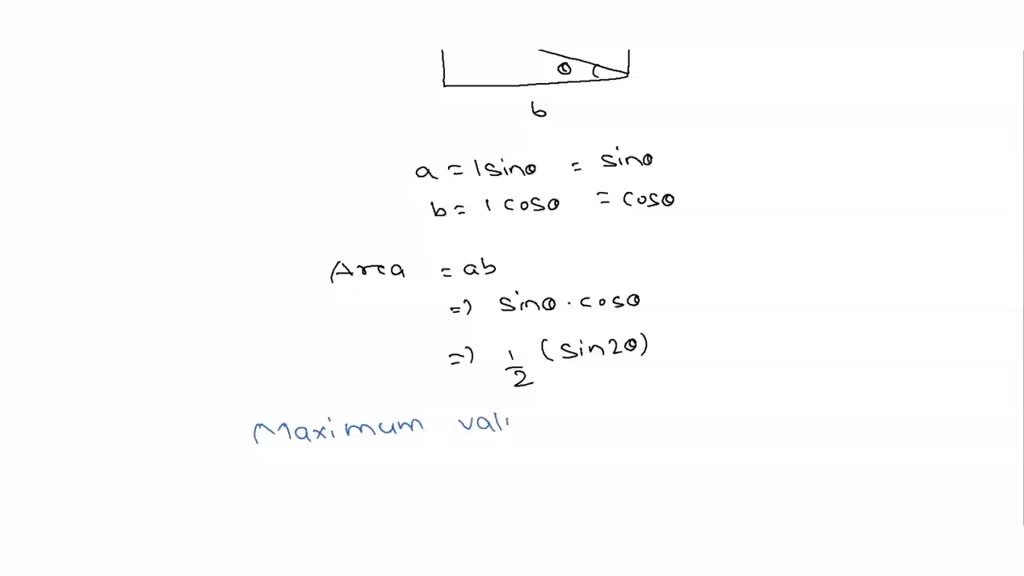 θ
b
a = 1 sinθ = sinθ
b = 1 cosθ = cosθ
Area = ab
=) sinθ · cosθ
=) 1/2 (sin2θ)
Maximum val